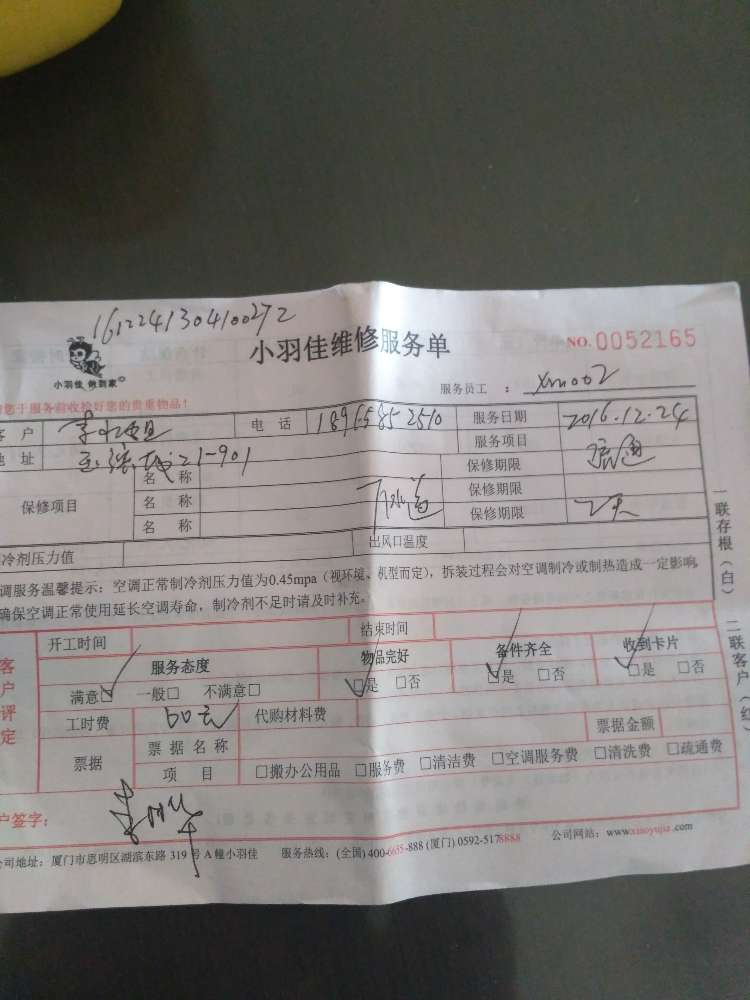 1612241304100272
小羽佳维修服务单 NO. 0052165
小羽佳 做到家
服务员工 : xm002
您于服务前收捡好您的贵重物品!
客 户 电 话 18965852510 服务日期 2016.12.24
地 址 21-901 服务项目 疏通
保修项目 名 称 保修期限
名 称 下水道 保修期限
名 称 保修期限
冷剂压力值 出风口温度
调服务温馨提示: 空调正常制冷剂压力值为0.45mpa (视环境、机型而定), 拆装过程会对空调制冷或制热造成一定影响,
确保空调正常使用延长空调寿命, 制冷剂不足时请及时补充。
一联存根(白) 二联客户(红)
客户评定
开工时间 结束时间
服务态度 物品完好 备件齐全 收到卡片
满意□ 一般□ 不满意□ □是 □否 □是 □否 □是 □否
工时费 60元 代购材料费
票据 票据名称 票据金额
项 目 □搬办公用品 □服务费 □清洁费 □空调服务费 □清洗费 □疏通费
户签字:
公司地址: 厦门市思明区湖滨东路 319 号 A 幢小羽佳 服务热线: (全国) 400-6655-888 (厦门) 0592-5178888 公司网站: www.xiaoyujia.com